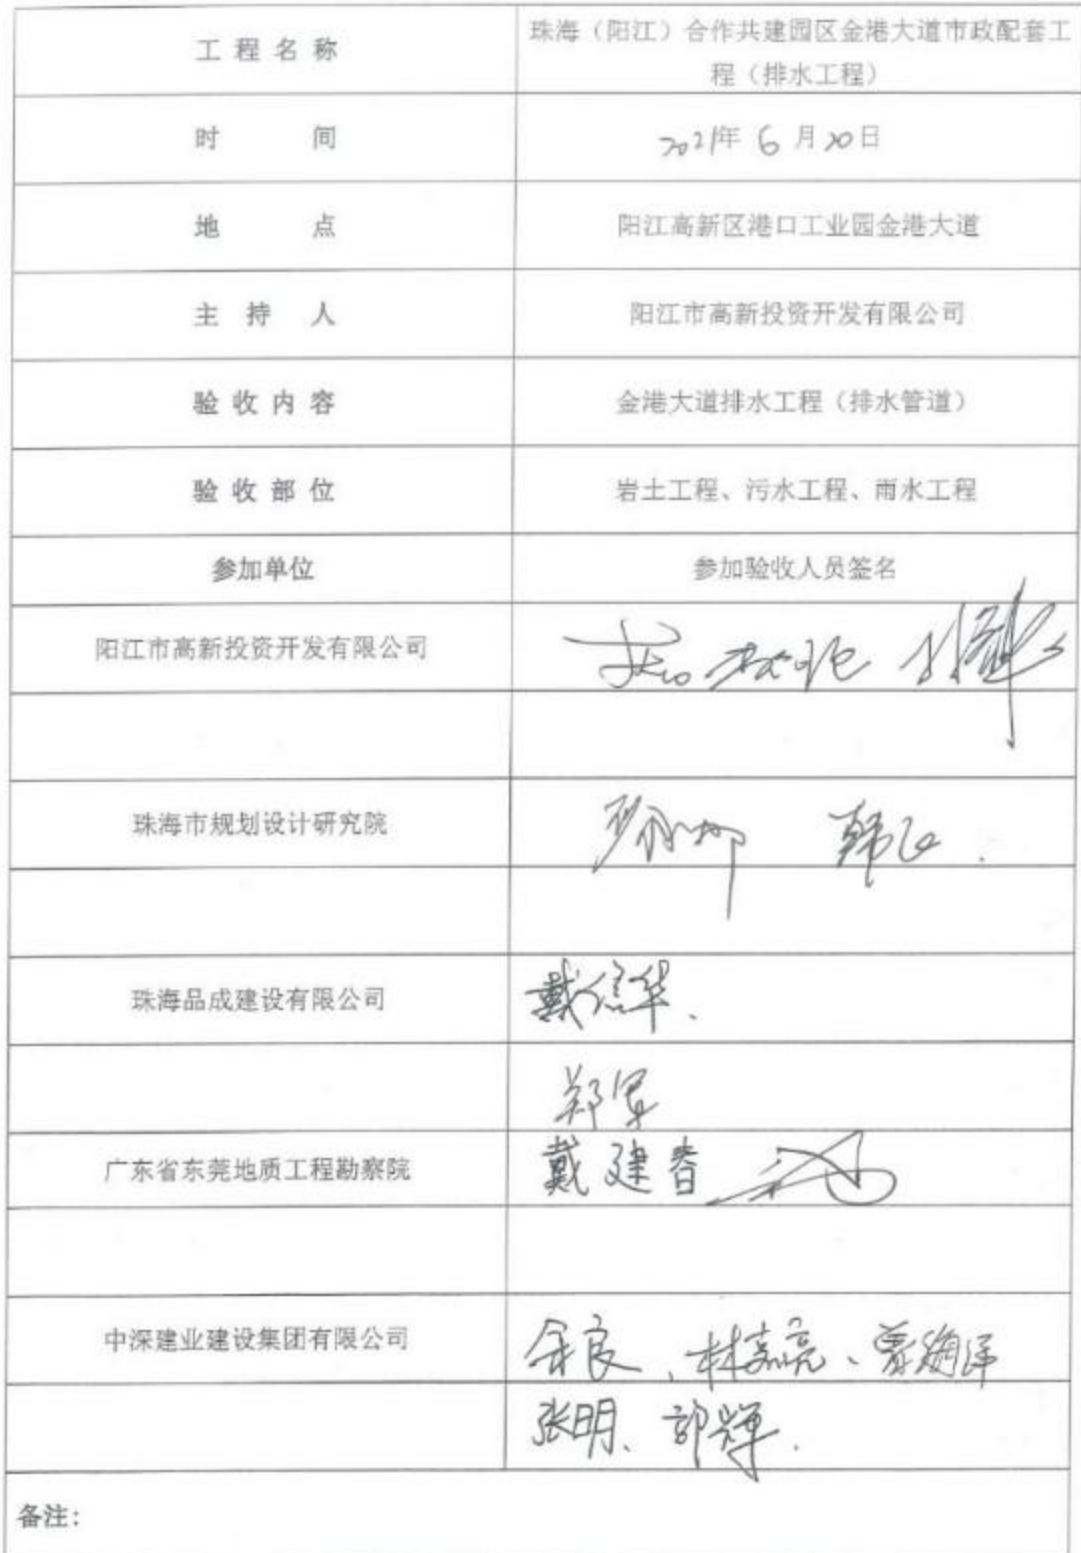 工程名称
珠海（阳江）合作共建园区金港大道市政配套工
程（排水工程）
时间
2021年6月20日
地点
阳江高新区港口工业园金港大道
主持人
阳江市高新投资开发有限公司
验收内容
金港大道排水工程（排水管道）
验收部位
岩土工程、污水工程、雨水工程
参加单位
参加验收人员签名
阳江市高新投资开发有限公司
珠海市规划设计研究院
珠海品成建设有限公司
郑军
广东省东莞地质工程勘察院
戴建春
中深建业建设集团有限公司
余良、林嘉亮、曾海洋
张明、郭辉.
备注：